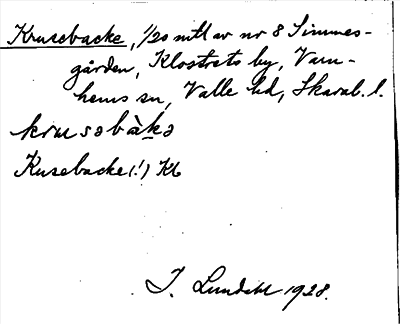 Krusebacke, 1/20 mtl av nr 8 Simmes-
gården, Klostrets by, Varn-
hems sn, Valle hd, Skarab. l.
krusəbàkə
Kusebacke (!) Kb
I. Lundahl 1928.